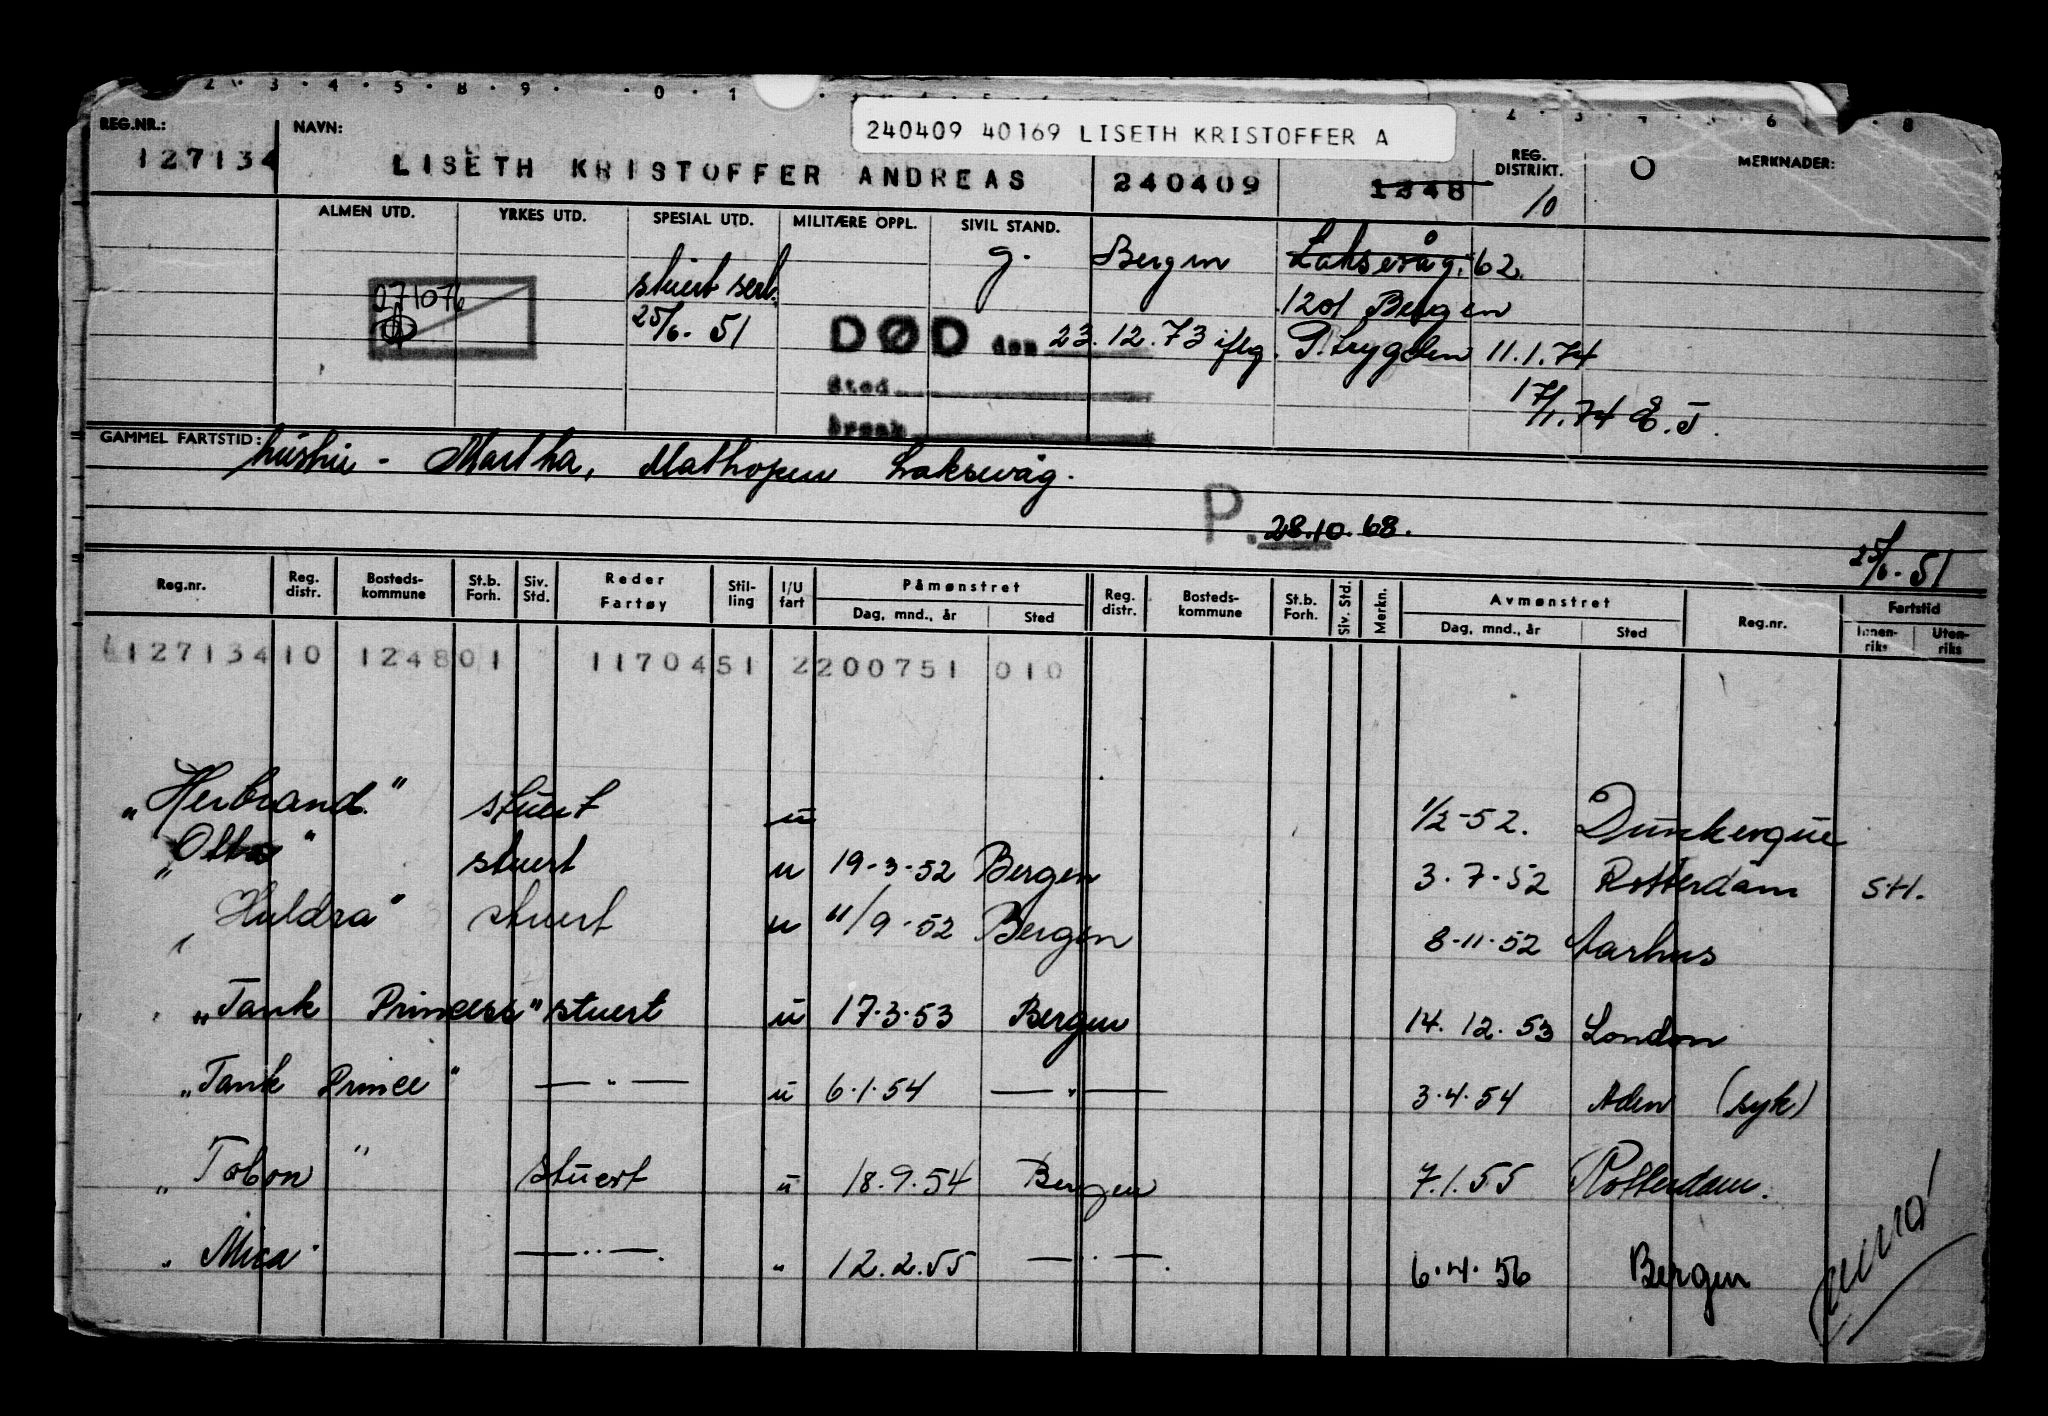 2 · 3 · 4 · 5 · 8 · 9 · · 0 · 1
240409 40169 LISETH KRISTOFFER A
REG.NR.: NAVN: REG. DISTRIKT. MERKNADER:
127134 LISETH KRISTOFFER ANDREAS 240409 1248 10
ALMEN UTD. YRKES UTD. SPESIAL UTD. MILITÆRE OPPL. SIVIL STAND.
g. Bergen Laksevåg. 62.
071076 stuert sert. 1201 Bergen
25/6. 51 DØD den 23.12.73 iflg. P.trygden 11.1.74
Sted
17/1.74 E.J.
Årsak
GAMMEL FARTSTID: hustru - Martha, Mathopen Laksevåg.
P. 28.10.68.
25/6. 51
Reg.nr. Reg. distr. Bosteds-kommune St.b. Forh. Siv. Std. Reder Fartøy Stil-ling I/U fart Påmønstret Reg. distr. Bosteds-kommune St.b. Forh. Siv. Std. Merkn. Avmønstret Reg.nr. Fartstid
Dag, mnd., år Sted Dag, mnd., år Sted Innen-riks Uten-riks
127134 10 124801 1170451 2200751 010
„Herbrand" stuert u 1/2-52. Dunkerque
„Otto" stuert u 19-3-52 Bergen 3.7.52 Rotterdam STI.
„Huldra" stuert u 11/9-52 Bergen 8-11-52 Aarhus
„Tank Princess" stuert u 17.3.53 Bergen 14.12.53 London
„Tank Prince" — " — u 6.1.54 — " — 3.4.54 Aden (syk)
„Tobon" stuert u 18.9.54 Bergen 7.1.55 Rotterdam.
„Mica" — " — " 12.2.55 — " — 6.4.56 Bergen